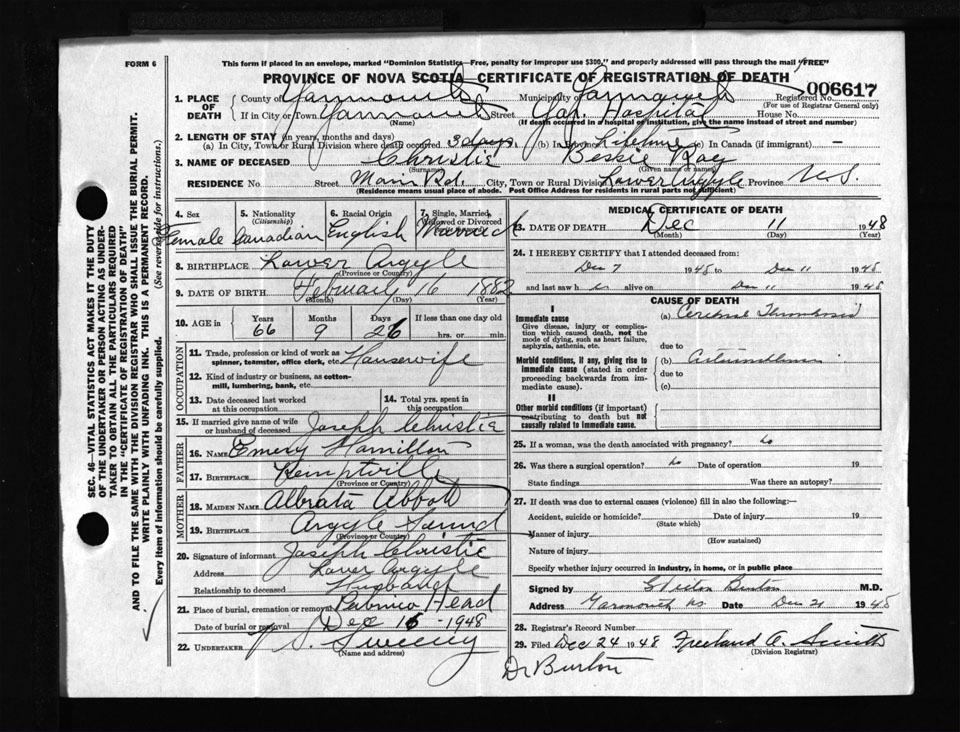 FORM 6
This form if placed in an envelope, marked "Dominion Statistics—Free, penalty for improper use $300," and properly addressed will pass through the mail "FREE"
PROVINCE OF NOVA SCOTIA CERTIFICATE OF REGISTRATION OF DEATH
006617
1. PLACE OF DEATH
County of Yarmouth Municipality of Yarmouth Registered No.
(For use of Registrar General only)
If in City or Town Yarmouth Street Hospital House No.
(Name) (If death occurred in a hospital or institution, give the name instead of street and number)
2. LENGTH OF STAY (in years, months and days)
(a) In City, Town or Rural Division where death occurred 3 days (b) In Province Lifetime (c) In Canada (if immigrant) —
3. NAME OF DECEASED Christie Bessie Rae
(Surname) (Given name or names)
RESIDENCE No. Street Main Rd. City, Town or Rural Division Lower Argyle Province N.S.
(Residence means usual place of abode. Post Office Address for residents in rural parts not sufficient)
4. Sex Female
5. Nationality (Citizenship) Canadian
6. Racial Origin English
7. Single, Married, Widowed or Divorced Married
8. BIRTHPLACE Lower Argyle
(Province or Country)
9. DATE OF BIRTH February 16 1882
(Month) (Day) (Year)
10. AGE in Years Months Days If less than one day old
66 9 26 hrs. or min.
OCCUPATION
11. Trade, profession or kind of work as spinner, teamster, office clerk, etc. Housewife
12. Kind of industry or business, as cotton-mill, lumbering, bank, etc.
13. Date deceased last worked at this occupation
14. Total yrs. spent in this occupation
15. If married give name of wife or husband of deceased Joseph Christie
FATHER
16. Name Emery Hamilton
17. Birthplace Kemptville
(Province or Country)
MOTHER
18. Maiden Name Albrata Abbott
19. Birthplace Argyle Sound
(Province or Country)
20. Signature of informant Joseph Christie
Address Lower Argyle
Relationship to deceased Husband
21. Place of burial, cremation or removal Pubnico Head
Date of burial or removal Dec 16 - 1948
22. UNDERTAKER Sweeny
(Name and address)
MEDICAL CERTIFICATE OF DEATH
23. DATE OF DEATH Dec 11 1948
(Month) (Day) (Year)
24. I HEREBY CERTIFY that I attended deceased from:
Dec 7 1948 to Dec 11 1948
and last saw her alive on Dec 11 1948
CAUSE OF DEATH
I
Immediate cause
Give disease, injury or complication which caused death, not the mode of dying, such as heart failure, asphyxia, asthenia, etc.
(a) Cerebral Thrombosis
due to
Morbid conditions, if any, giving rise to immediate cause (stated in order proceeding backwards from immediate cause).
(b)
due to
(c)
II
Other morbid conditions (if important) contributing to death but not causally related to immediate cause.
25. If a woman, was the death associated with pregnancy? No
26. Was there a surgical operation? No Date of operation 19
State findings Was there an autopsy?
27. If death was due to external causes (violence) fill in also the following:—
Accident, suicide or homicide? Date of injury 19
(State which)
Manner of injury
(How sustained)
Nature of injury
Specify whether injury occurred in industry, in home, or in public place
Signed by Burton M.D.
Address Yarmouth NS Date Dec 21 1948
28. Registrar's Record Number
29. Filed Dec 24 1948 Freeland A. Smith
(Division Registrar)
Dr Burton
SEC. 46—VITAL STATISTICS ACT MAKES IT THE DUTY OF THE UNDERTAKER OR PERSON ACTING AS UNDERTAKER TO OBTAIN ALL THE PARTICULARS REQUIRED IN THE "CERTIFICATE OF REGISTRATION OF DEATH" AND TO FILE THE SAME WITH THE DIVISION REGISTRAR WHO SHALL ISSUE THE BURIAL PERMIT.
WRITE PLAINLY WITH UNFADING INK. THIS IS A PERMANENT RECORD.
Every item of information should be carefully supplied. (See reverse side for instructions.)